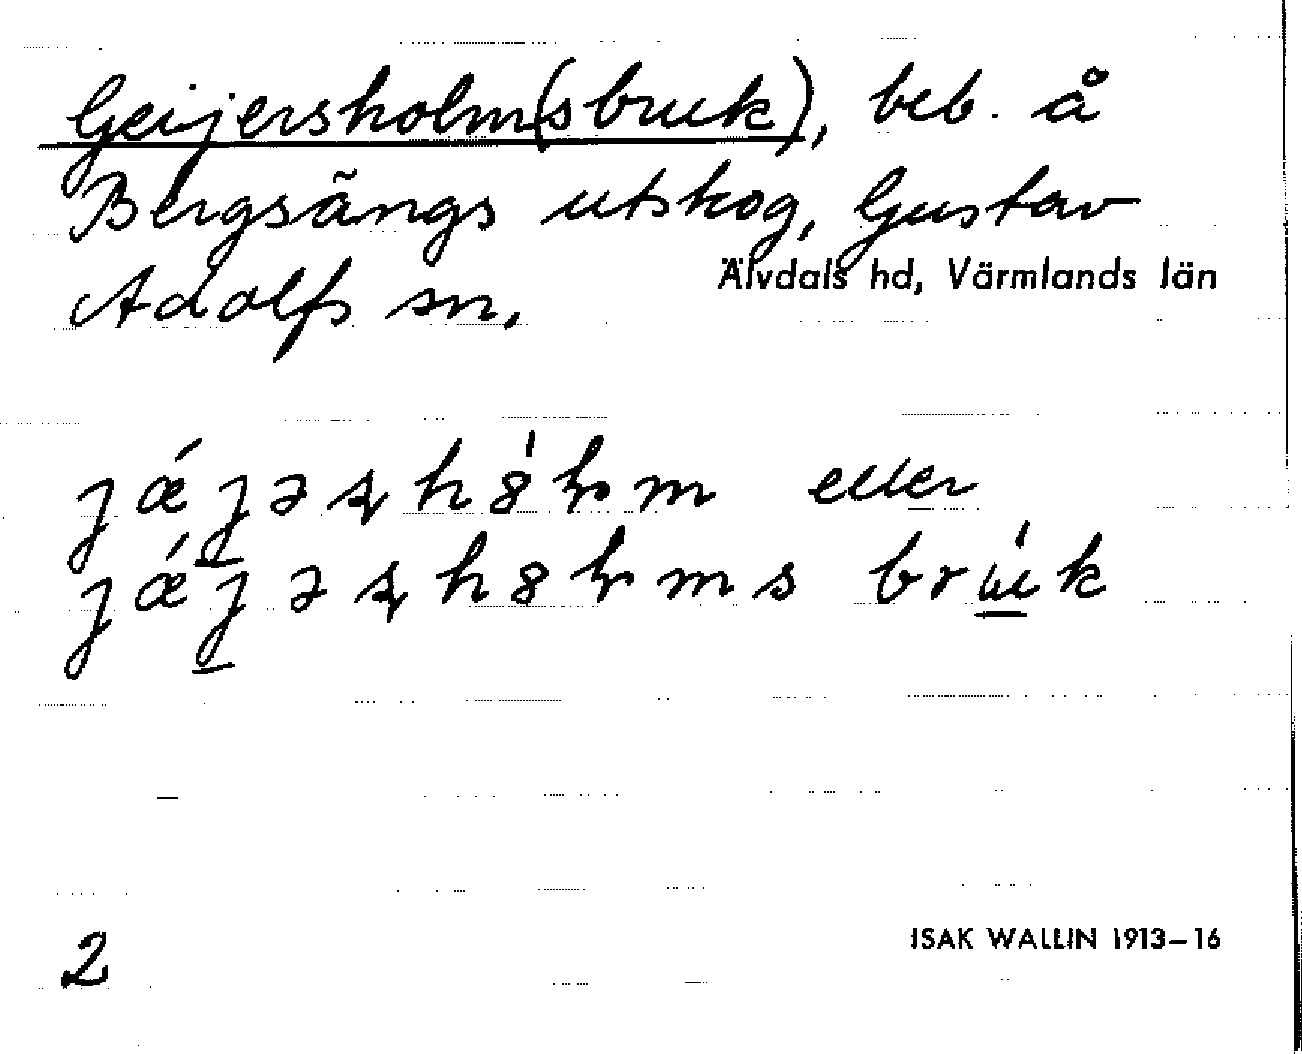 Geijersholm(sbruk), beb. å
Bergsängs utskog, Gustav
Adolfs sn.
Älvdals hd, Värmlands län
jǽjəʂhȣ́ɫm eller
jǽjəʂhȣɫms brúk
2
ISAK WALLIN 1913–16